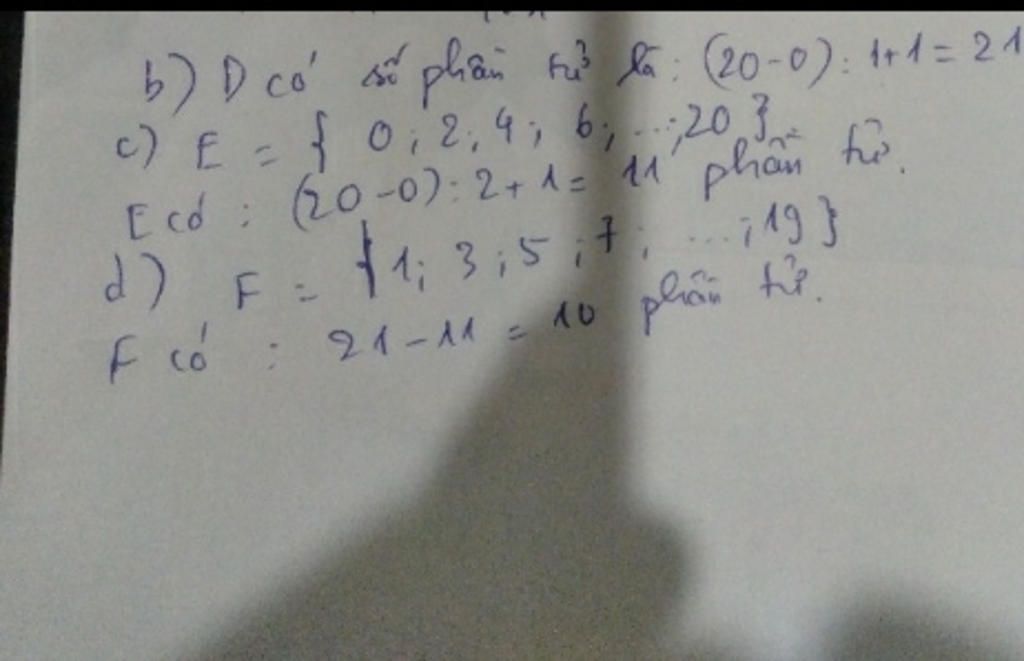 b) D có số phần tử là: (20-0): 1+1 = 21
c) E = { 0; 2; 4; 6; ...; 20 }
E có : (20-0): 2+1 = 11 phần tử.
d) F = { 1; 3; 5; 7; ...; 19 }
F có : 21-11 = 10 phần tử.